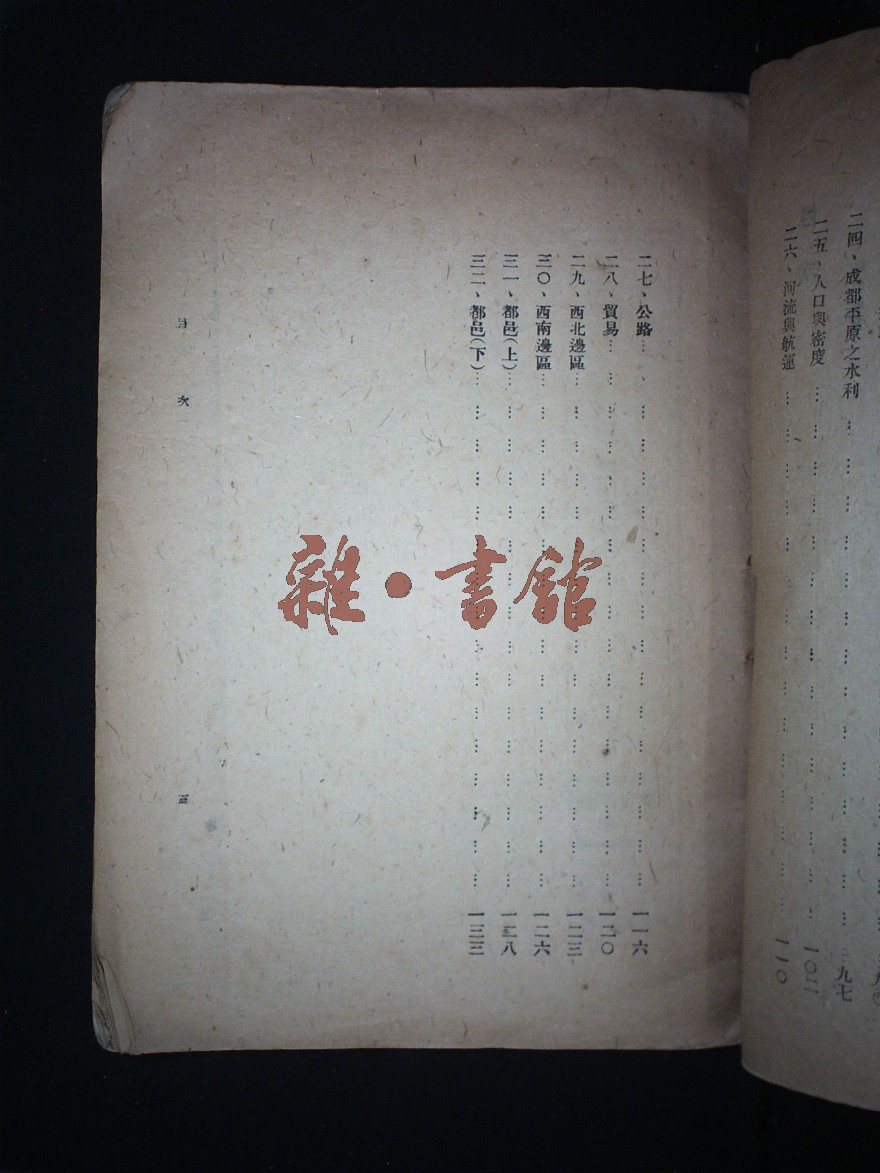 二四、成都平原之水利………九七
二五、人口與密度………一〇二
二六、河流與航運………一一〇
二七、公路………一一六
二八、貿易………一二〇
二九、西北邊區………一二三
三〇、西南邊區………一二六
三一、都邑(上)………一二八
三二、都邑(下)………一三三
目次
三
雜·書館